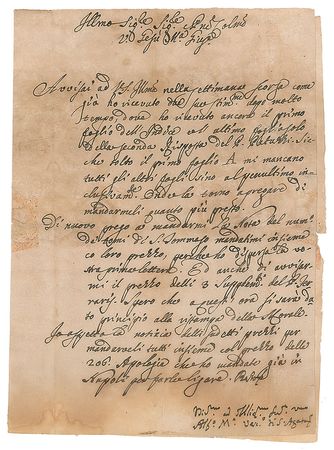 Illmo Sig.e Sig.e Pne Colmo
V. Gesù M.a Giuse
Avvisai ad V.S. Illma nella settimana scorsa come
già ho ricevuto due sue dopo molto
tempo, dove ho ricevuto ancora il primo
foglio dell' ed ultimo
della seconda Risposta del P. Patuzzi. Sic-
che tolto il primo foglio a mi mancano
tutti gli altri fogli sino al penultimo in-
clusivam.e Onde la torno a pregare di
mandarmeli quanto più presto.
Di nuovo prego a mandarmi la Nota del num.o
de' tomi di S. Tommaso mandatimi insieme
co loro prezzo, perche ho dispersa la vo-
stra prima lettera. Ed anche di avvisar-
mi il prezzo delli 3 Supplem. del P. Fer-
raris. Spero che a quest' ora si sarà da-
to principio alla ristampa della Morale.
Io aspetto la notizia delli detti prezzi per
mandarveli tutti insieme col prezzo delle
206. Apologie che ho mandato già in
Napoli per farle ligare. Resto
Di V.S. Illma
Alf.o M.a Vesc.o di S. Agata